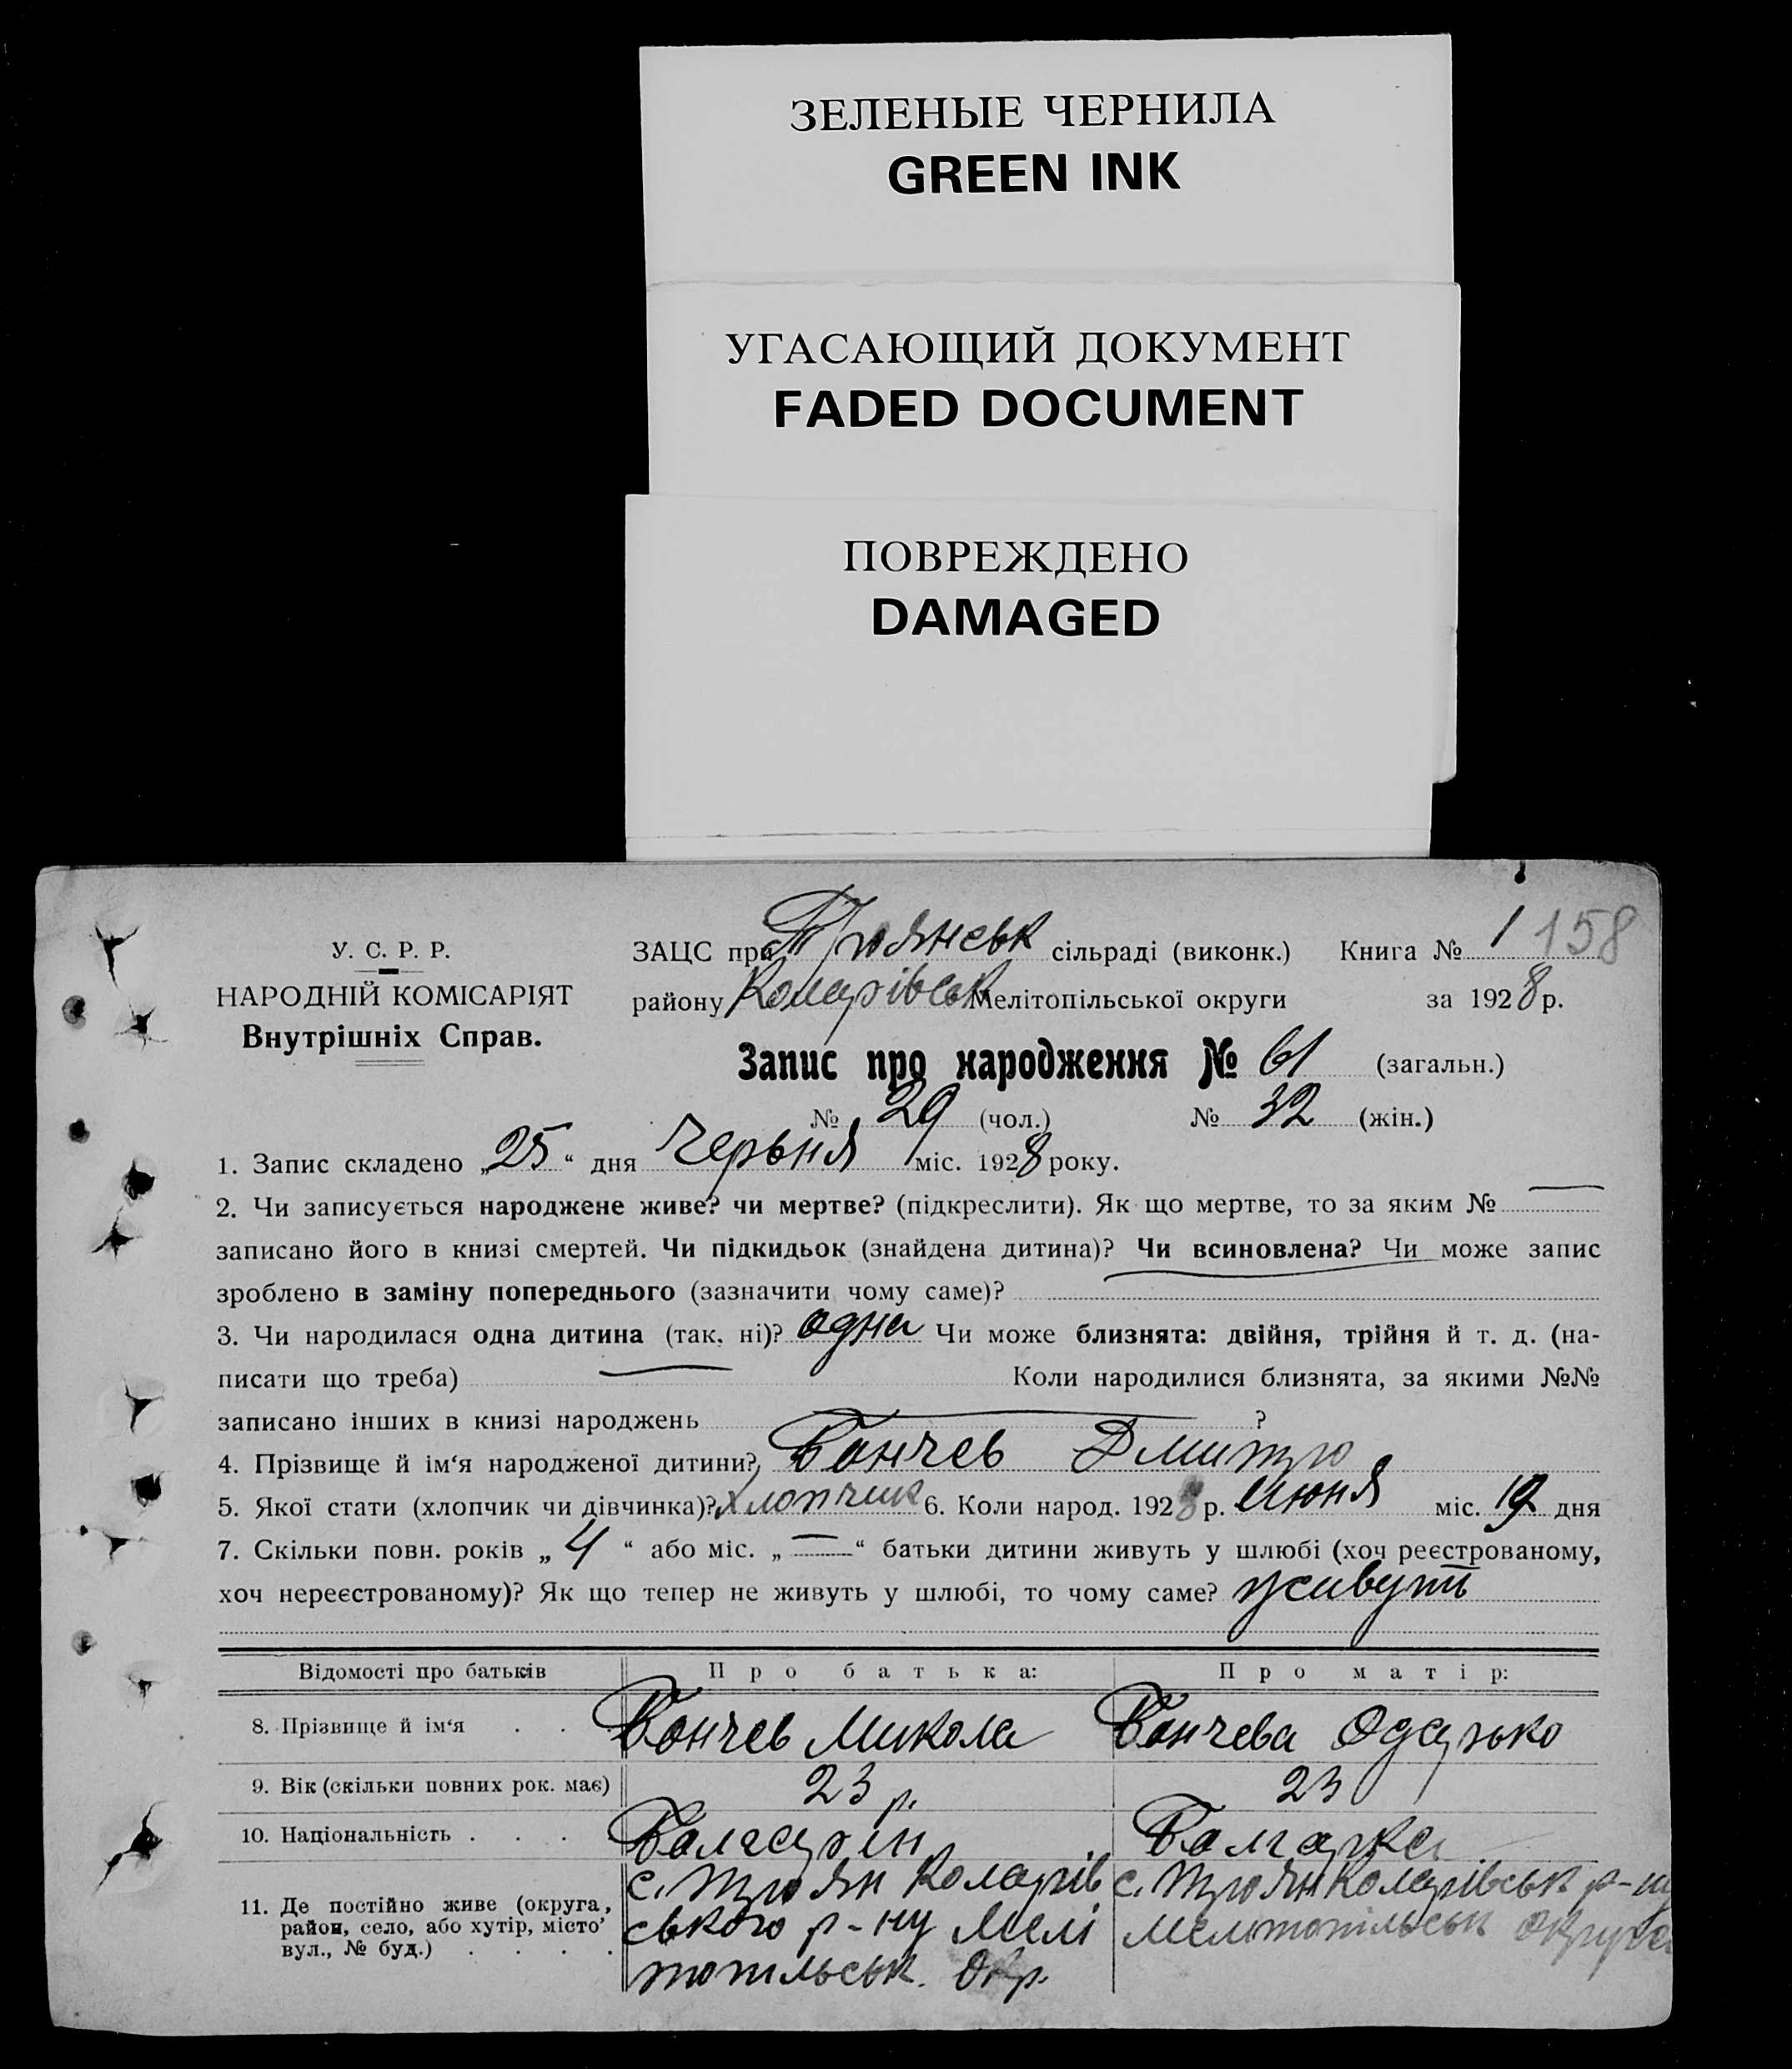 ЗЕЛЕНЫЕ ЧЕРНИЛА
GREEN INK
УГАСАЮЩИЙ ДОКУМЕНТ
FADED DOCUMENT
ПОВРЕЖДЕНО
DAMAGED
У. С. Р. Р.
НАРОДНІЙ КОМІСАРІЯТ
Внутрішніх Справ.
ЗАЦС при Троянськ сільраді (виконк.) Книга № 1 158
району Коларівськ Мелітопільської округи за 1928 р.
Запис про народження № 61 (загальн.)
№ 29 (чол.) № 32 (жін.)
1. Запис складено „25“ дня Червня міс. 1928 року.
2. Чи записується народжене живе? чи мертве? (підкреслити). Як що мертве, то за яким № —
записано його в книзі смертей. Чи підкидьок (знайдена дитина)? Чи всиновлена? Чи може запис
зроблено в заміну попереднього (зазначити чому саме)?
3. Чи народилася одна дитина (так, ні)? одна Чи може близнята: двійня, трійня й т. д. (на-
писати що треба) — Коли народилися близнята, за якими №№
записано інших в книзі народжень — ?
4. Прізвище й ім‘я народженої дитини? Бончев Дмитро
5. Якої стати (хлопчик чи дівчинка)? хлопчик 6. Коли народ. 1928 р. Июня міс. 19 дня
7. Скільки повн. років „4“ або міс. „—“ батьки дитини живуть у шлюбі (хоч реєстрованому,
хоч нереєстрованому)? Як що тепер не живуть у шлюбі, то чому саме? живуть
Відомості про батьків Про батька: Про матір:
8. Прізвище й ім‘я . . . Бончев Микола Бончева Одарько
9. Вік (скільки повних рок. має) 23 р. 23
10. Національність . . . Болгарін Болгарка
11. Де постійно живе (округа,
район, село, або хутір, місто
вул., № буд.) . . . .
с. Троян Коларів
ського р-ну Мелі
топільськ. Окр.
с. Троян Коларівськ р-ну
Мелітопільськ Округа